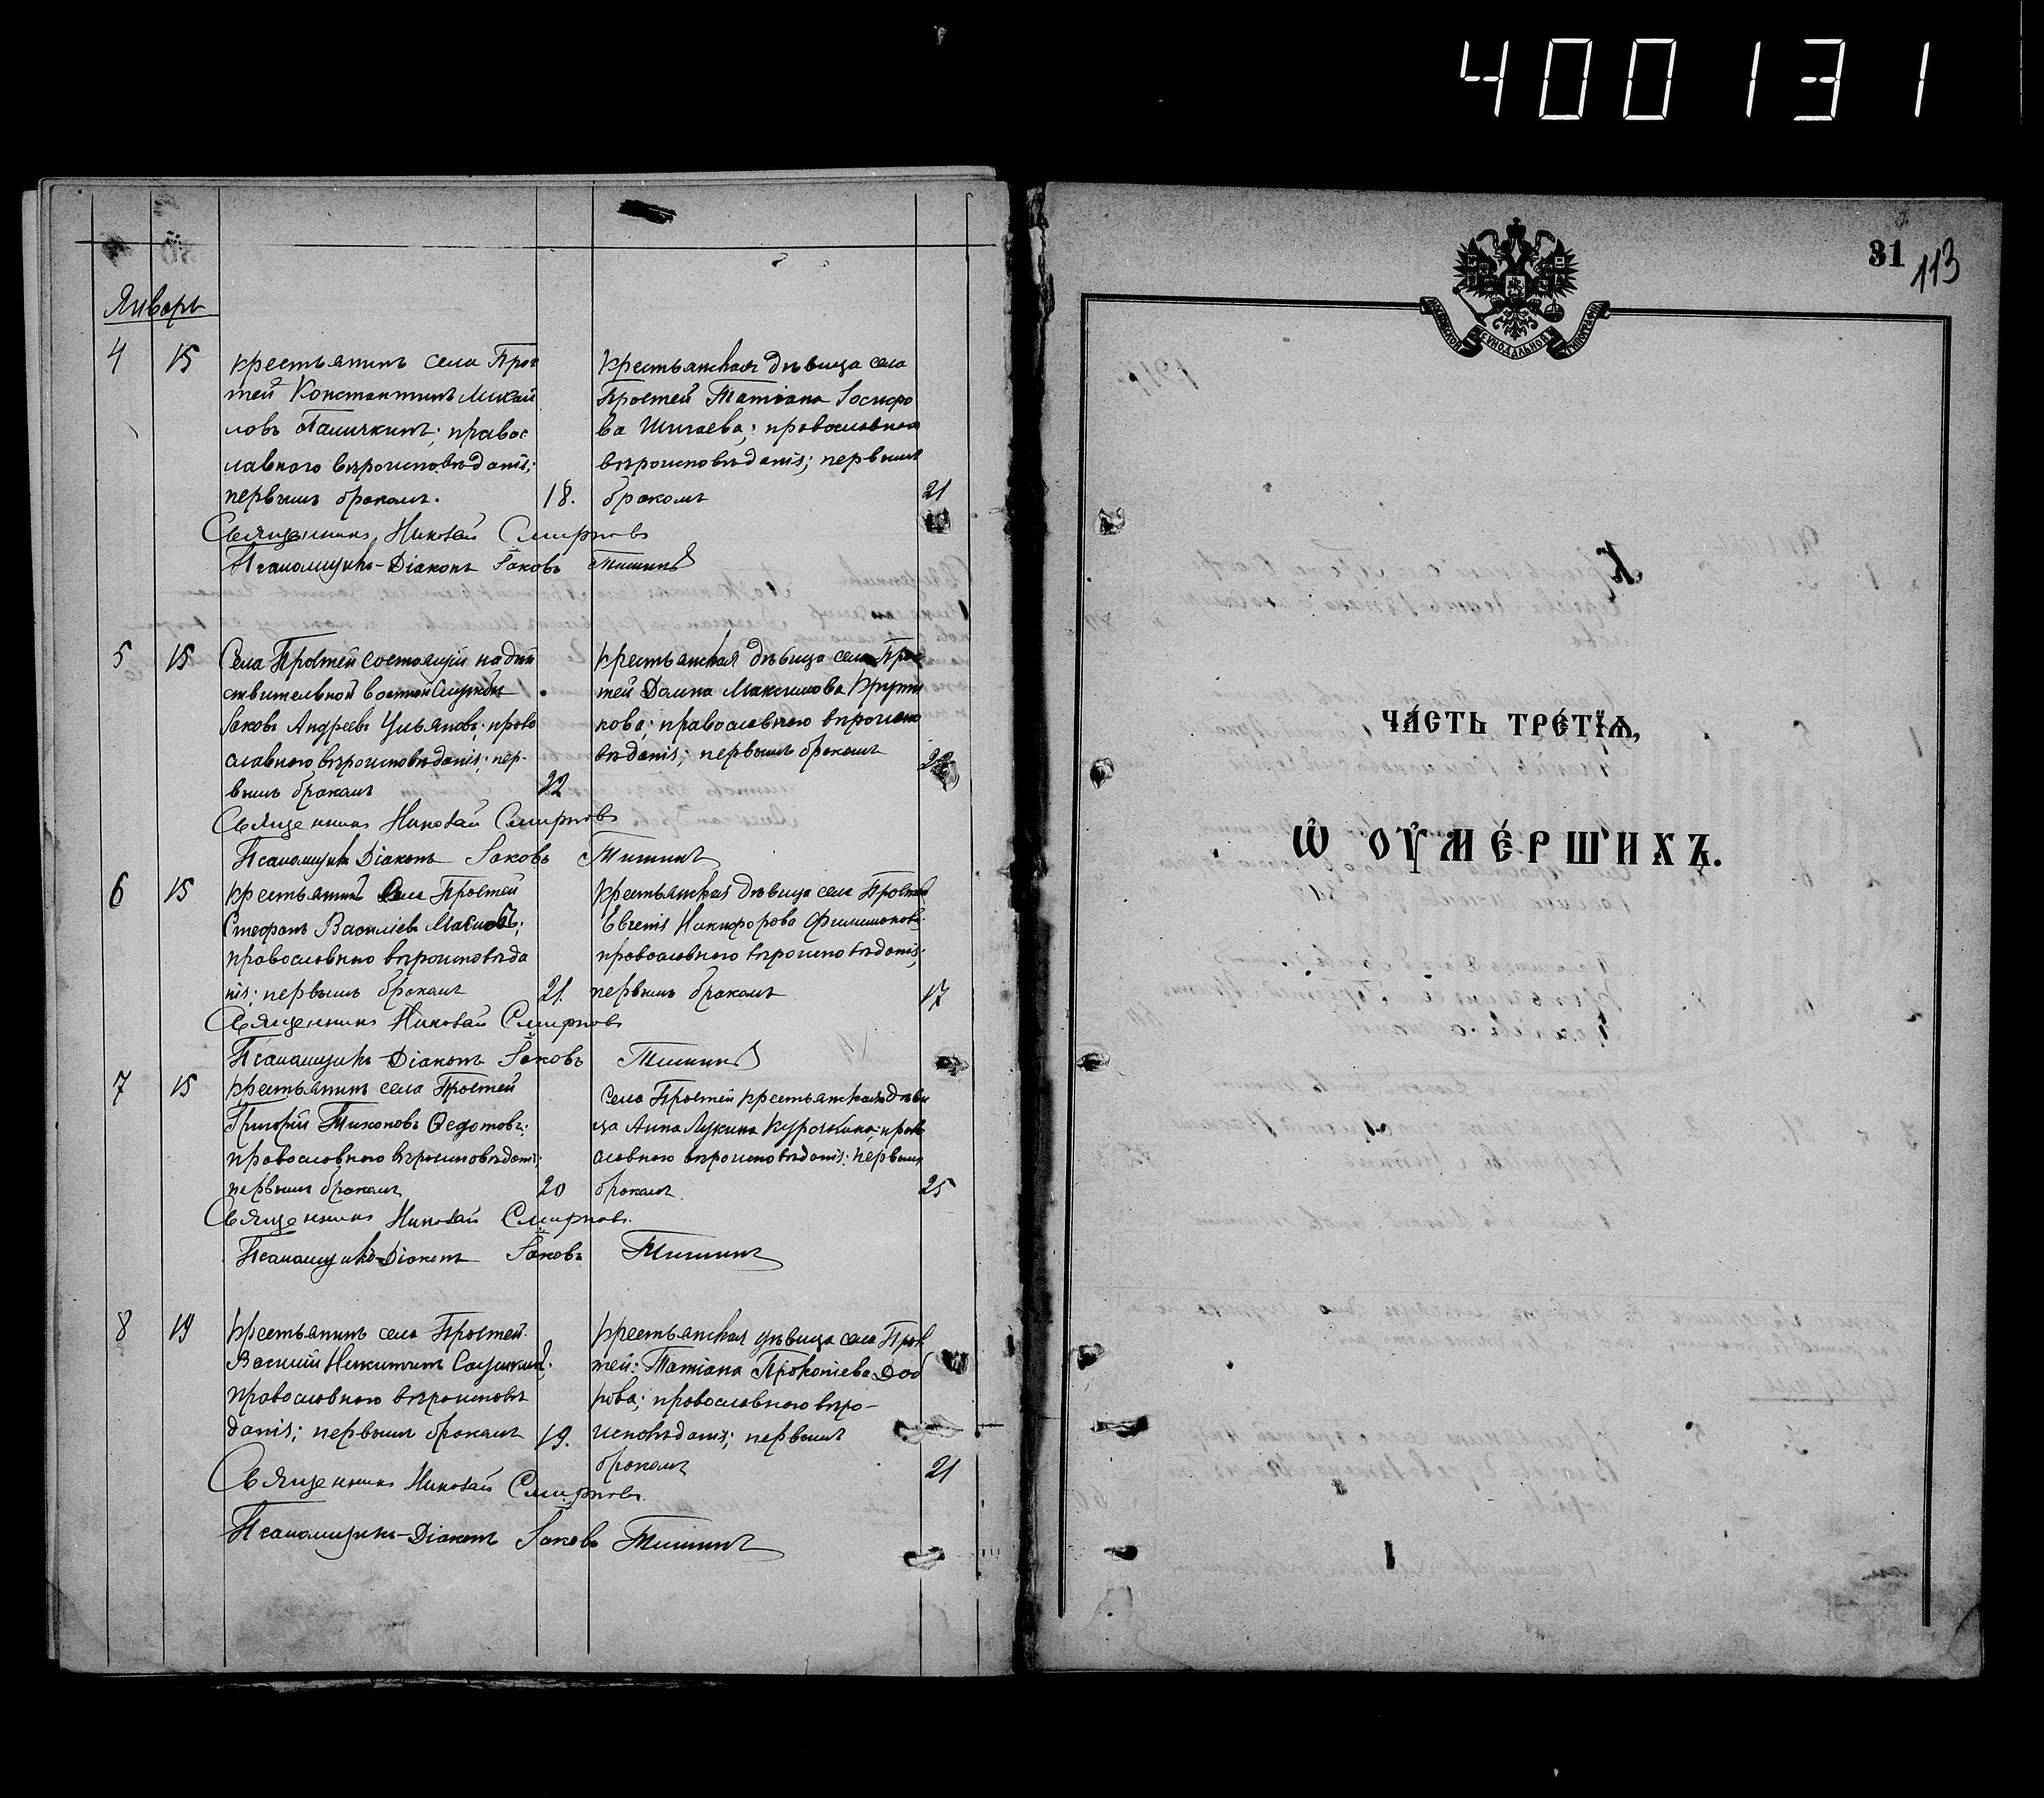 400131
Январь
4 15 крестьянинъ села Прос
тей Константинъ Михай
ловъ Паличкинъ; правос
лавнаго вѣроисповѣданія;
первымъ бракомъ. 18.
Крестьянская дѣвица села
Простей Татіана Іосифо
ва Шигаева; православнаго
вѣроисповѣданія; первымъ
бракомъ 21
Священникъ Николай Смирновъ
Псаломщикъ-Діаконъ Іаковъ Тишинъ
5 15 Села Простей состоящій на дѣй
ствительной военной службѣ
Іаковъ Андреевъ Ульяновъ; право
славнаго вѣроисповѣданія; пер-
вымъ бракомъ 22
Крестьянская дѣвица села Прос
тей Домна Максимова
кова; православнаго вѣроиспо
вѣданія; первымъ бракомъ 22
Священникъ Николай Смирновъ
Псаломщикъ Діаконъ Іаковъ Тишинъ
6 15 крестьянинъ Села Простей
Стефанъ Василіевъ Масловъ;
православнаго вѣроисповѣда
нія; первымъ бракомъ 21.
Крестьянская дѣвица села Простей
Евгенія Никифорова Филимонова;
православнаго вѣроисповѣданія;
первымъ бракомъ 17
Священникъ Николай Смирновъ
Псаломщикъ-Діаконъ Іаковъ Тишинъ
7 15 крестьянинъ села Простей
Григорій Тихоновъ Ѳедотовъ;
православнаго вѣроисповѣданія;
первымъ бракомъ 20
Села Простей крестьянская дѣви
ца Анна Лукина Курочкина; право
славнаго вѣроисповѣданія; первымъ
бракомъ 25
Священникъ Николай Смирновъ.
Псаломщикъ-Діаконъ Іаковъ Тишинъ
8 19 Крестьянинъ села Простей
Василій Никитинъ
православнаго вѣроисповѣ
данія; первымъ бракомъ 19.
Крестьянская дѣвица села Прос
тей: Татіана Прокопіева Доб
рова; православнаго вѣро-
исповѣданія; первымъ
бракомъ 21
Священникъ Николай Смирновъ.
Псаломщикъ-Діаконъ Іаковъ Тишинъ
31 113
МОСКОВСКОЙ СѴНОДАЛЬНОЙ ТИПОГРАФІИ
ЧА́СТЬ ТРЕ́ТЇѦ,
Ѡ҆ ОУ҆МЕ́РШИХЪ.